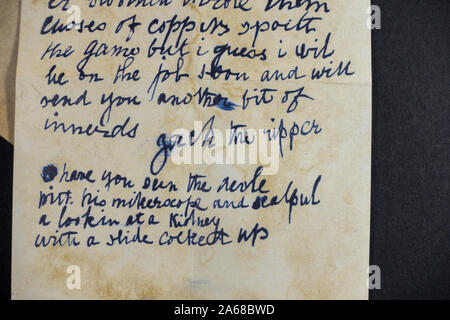 them
cusses of coppers spoilt
the game but i guess i wil
be on the job soon and will
send you another bit of
innerds
Jack the ripper
O have you seen the devle
with his mikerscope and scalpul
a lookin at a Kidney
with a slide cocked up
alamy
Image ID: 2A68BWD
www.alamy.com